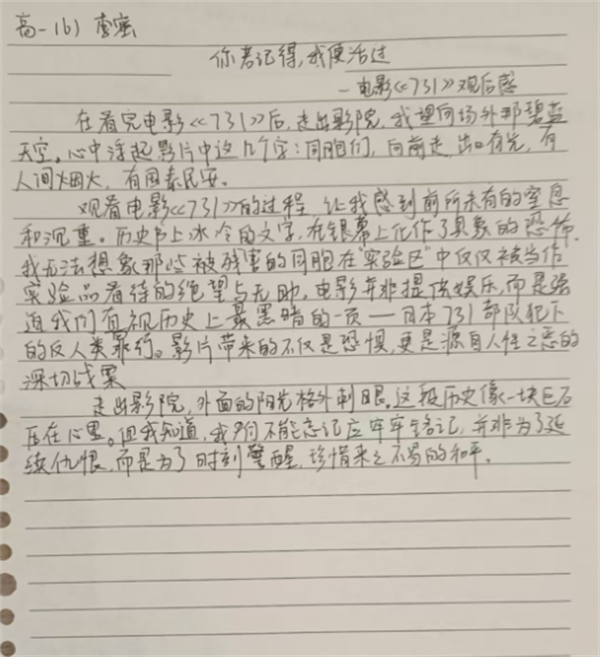 高一(6) 李蜜
你若记得,我便活过
-电影《731》观后感
在看完电影《731》后,走出影院,我望向场外那碧蓝
天空。心中浮起影片中这几个字:同胞们,向前走,出口有光,有
人间烟火,有国泰民安。
观看电影《731》的过程 让我感到前所未有的窒息
和沉重。历史书上冰冷的文字,在银幕上化作了具象的恐怖,
我无法想象那些被残害的同胞在"实验区"中仅仅被当作
实验品看待的绝望与无助。电影并非提供娱乐,而是强
迫我们直视历史上最黑暗的一页——日本731部队犯下
的反人类罪行。影片带来的不仅是恐惧,更是源自人性之恶的
深切战栗
走出影院,外面的阳光格外刺眼。这段历史像一块巨石
压在心里。但我知道,我们不能忘记应牢牢铭记,并非为了延
续仇恨,而是为了时刻警醒,珍惜来之不易的和平。